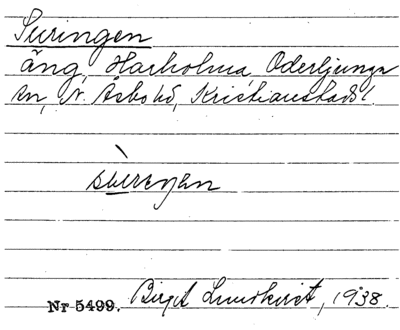 Suringen
äng, Harholma, Oderljunga
sn, N. Åsbo hd, Kristianstads l.
Nr 5499. Birgit Lundkvist, 1938.